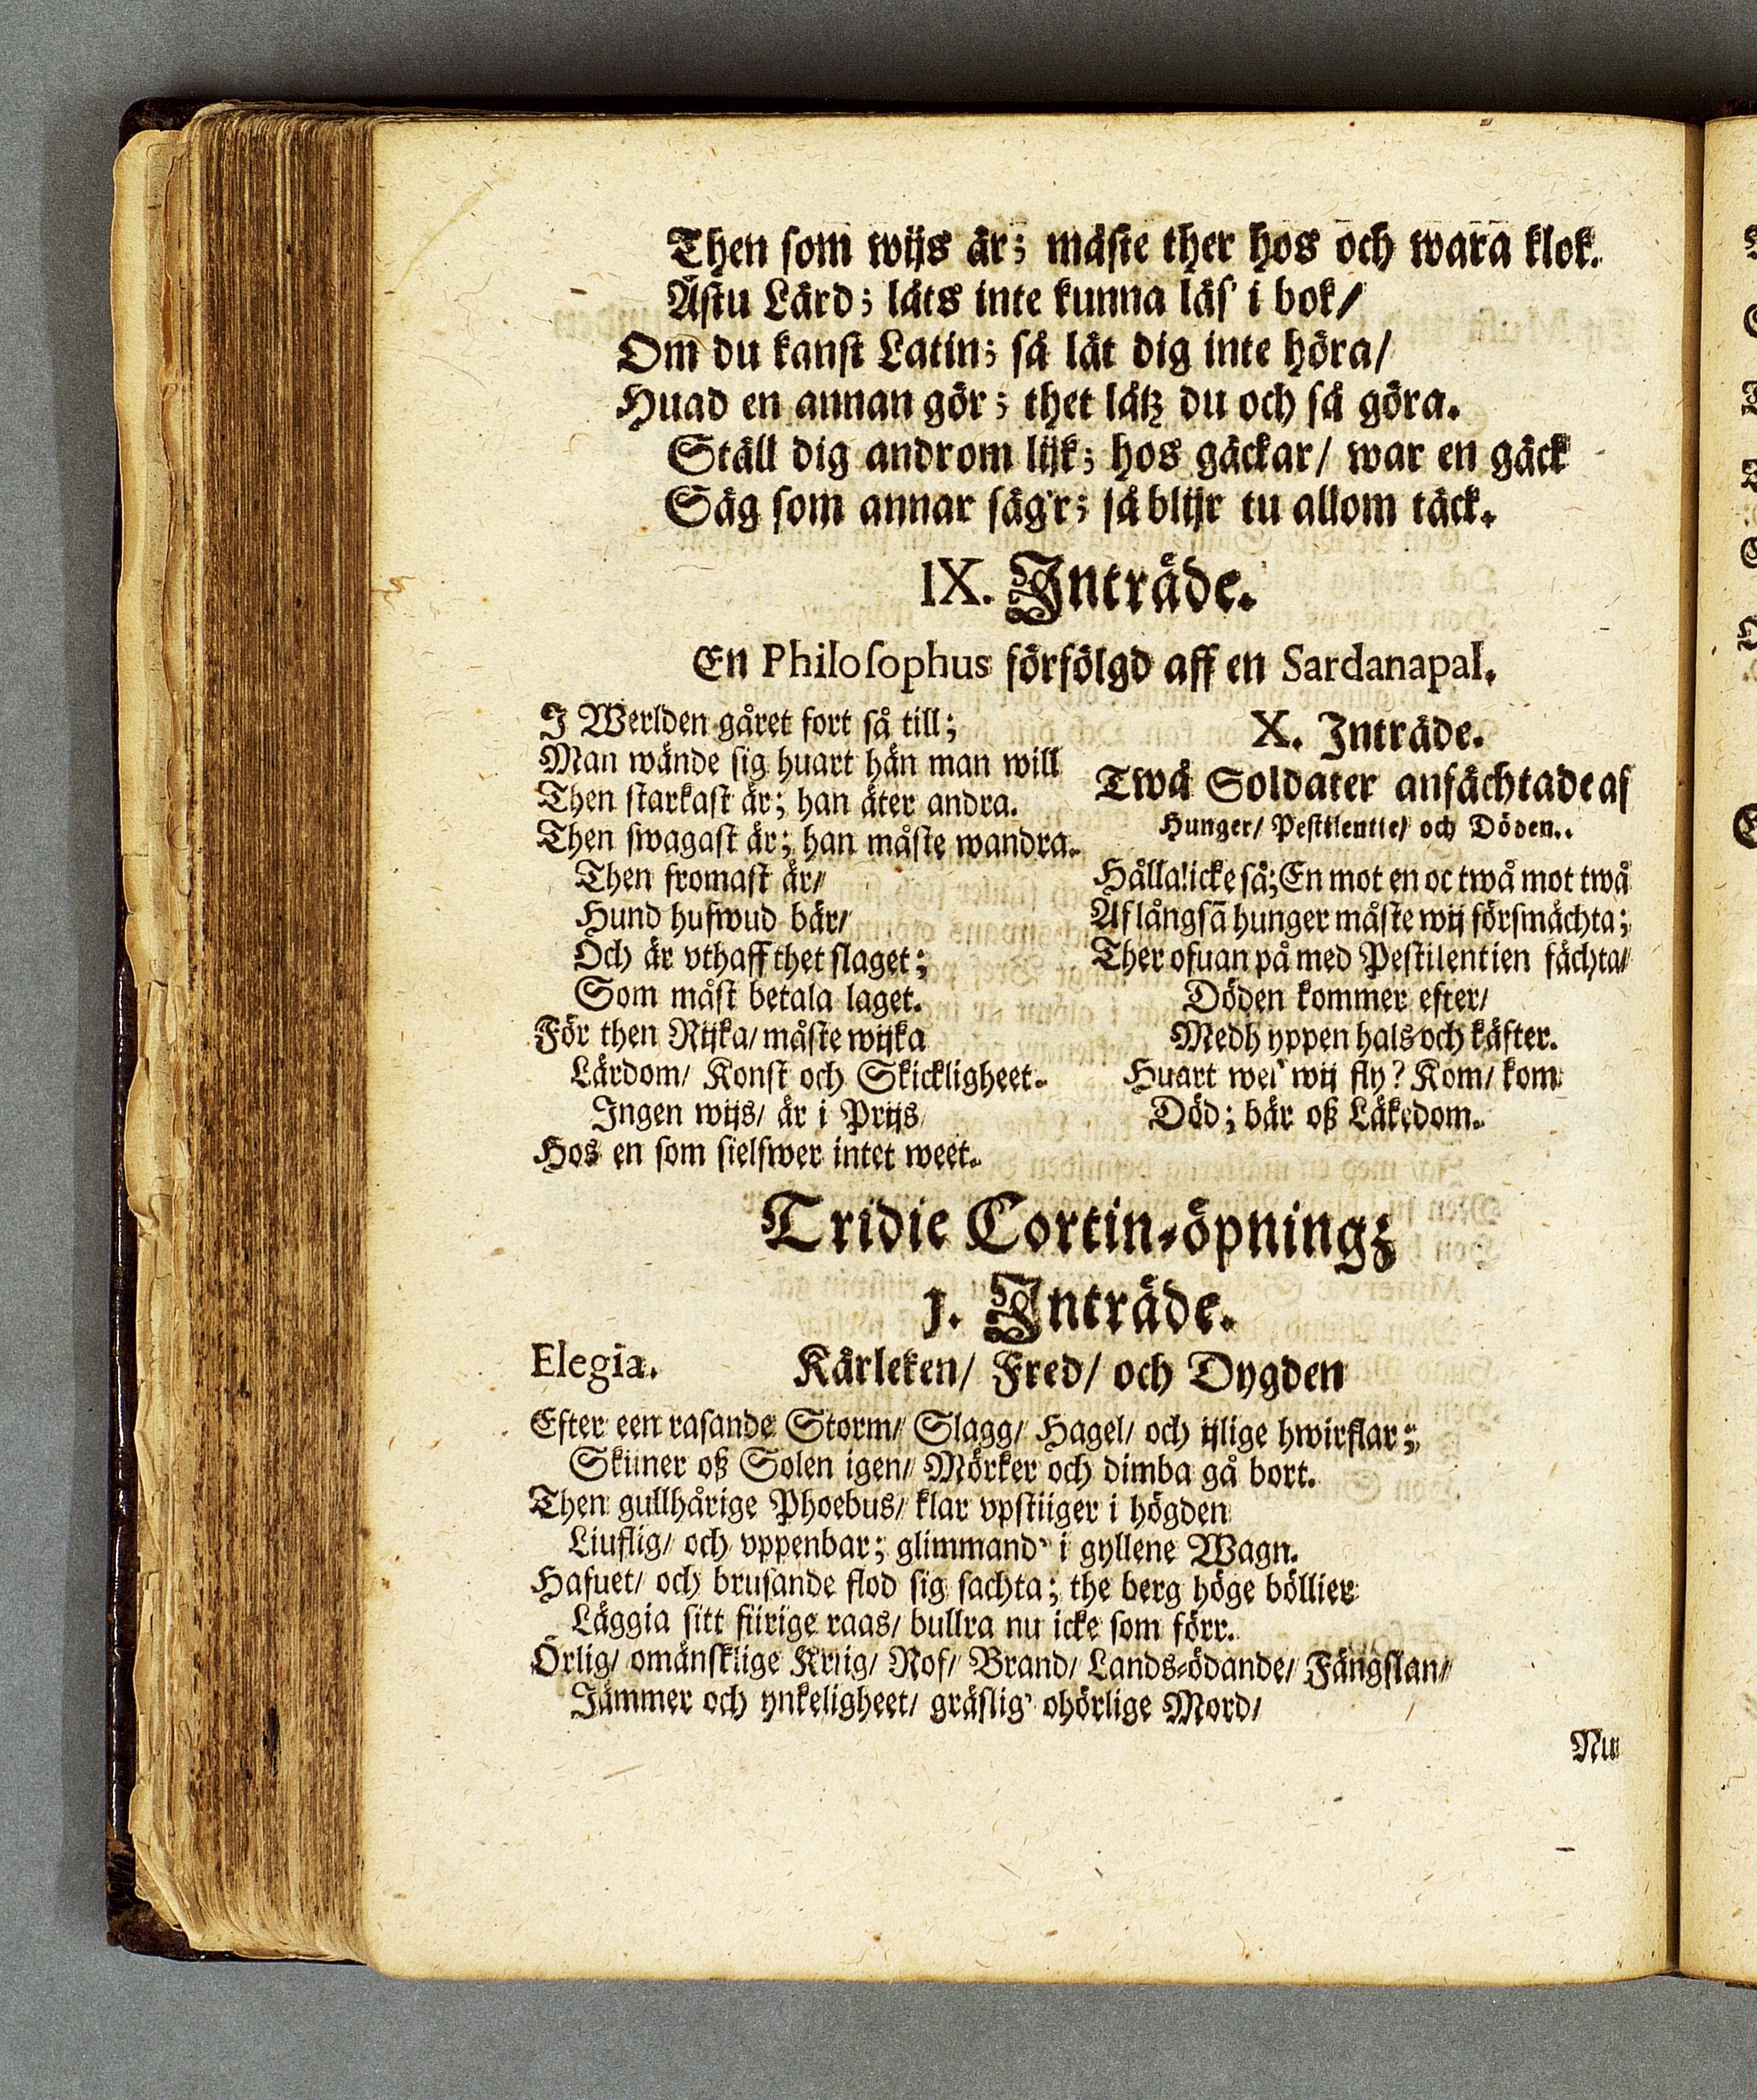 Then som wijs är; måste ther hos och wara klok.
Ästu Lärd; låts inte kunna läs' i bok/
Om du kanst Latin; så låt dig inte höra/
Huad en annan gör; thet låtz du och så göra.
Ställ dig androm lijk; hos gäckar/ war en gäck
Säg som annar säg'r; så blijr tu allom täck.
IX. Inträde.
En Philosophus förfölgd aff en Sardanapal.
I Werlden gåret fort så till;
Man wände sig huart hän man will
Then starkast är; han äter andra.
Then swagast är; han måste wandra.
Then fromast är/
Hund hufwud bär/
Och är vthaff thet slaget;
Som måst betala laget.
För then Rijka/ måste wijka
Lärdom/ Konst och Skickligheet.
Ingen wijs/ är i Prijs
Hos en som sielfwer intet weet.
X. Inträde.
Twå Soldater anfächtade af
Hunger/ Pestilentie/ och Döden..
Hålla! icke så; En mot en oc twå mot twå
Af långsã hunger måste wij försmächta;
Ther ofuan på med Pestilentien fächta/
Döden kommer efter/
Medh yppen hals och käfter.
Huart wel' wij fly? Kom/ kom
Död; bär oß Läkedom.
Tridie Cortin-öpningz
1. Inträde.
Elegia. Kärleken/ Fred/ och Dygden
Efter een rasande Storm/ Slagg/ Hagel/ och ijlige hwirflar;
Skiiner oß Solen igen/ Mörker och dimba gå bort.
Then gullhårige Phoebus/ klar vpstiiger i högden
Liuflig/ och vppenbar; glimmand' i gyllene Wagn.
Hafuet/ och brusande flod sig sachta; the berg höge böllier
Läggia sitt fiirige raas/ bullra nu icke som förr.
Örlig/ omänsklige Kriig/ Rof/ Brand/ Lands-ödande/ Fängslan/
Jämmer och ynkeligheet/ gräslig' ohörlige Mord/
Nu